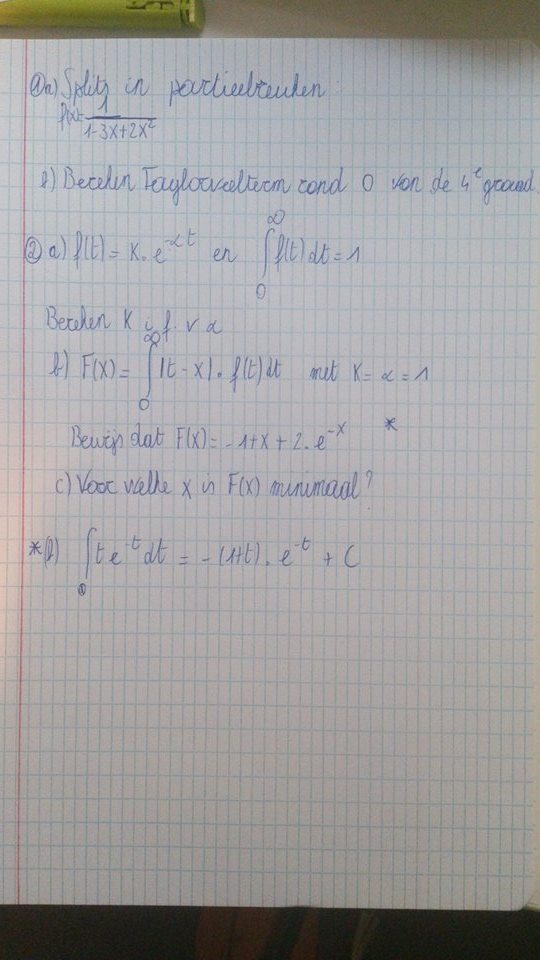 ① a) Splits in partieelbreuken :
f(x) = 1/(1-3x+2x²)
b) Bereken Taylorveelterm rond 0 van de 4e graad
② a) f(t) = K. e^(-αt) en ∫₀^∞ f(t) dt = 1
Bereken K i. f. v α
b) F(x) = ∫₀^∞ |t - x| . f(t) dt met K = α = 1
Bewijs dat F(x) = -1+x + 2. e^(-x) *
c) Voor welke x is F(x) minimaal?
*(b) ∫ t e^(-t) dt = - (1+t) . e^(-t) + C